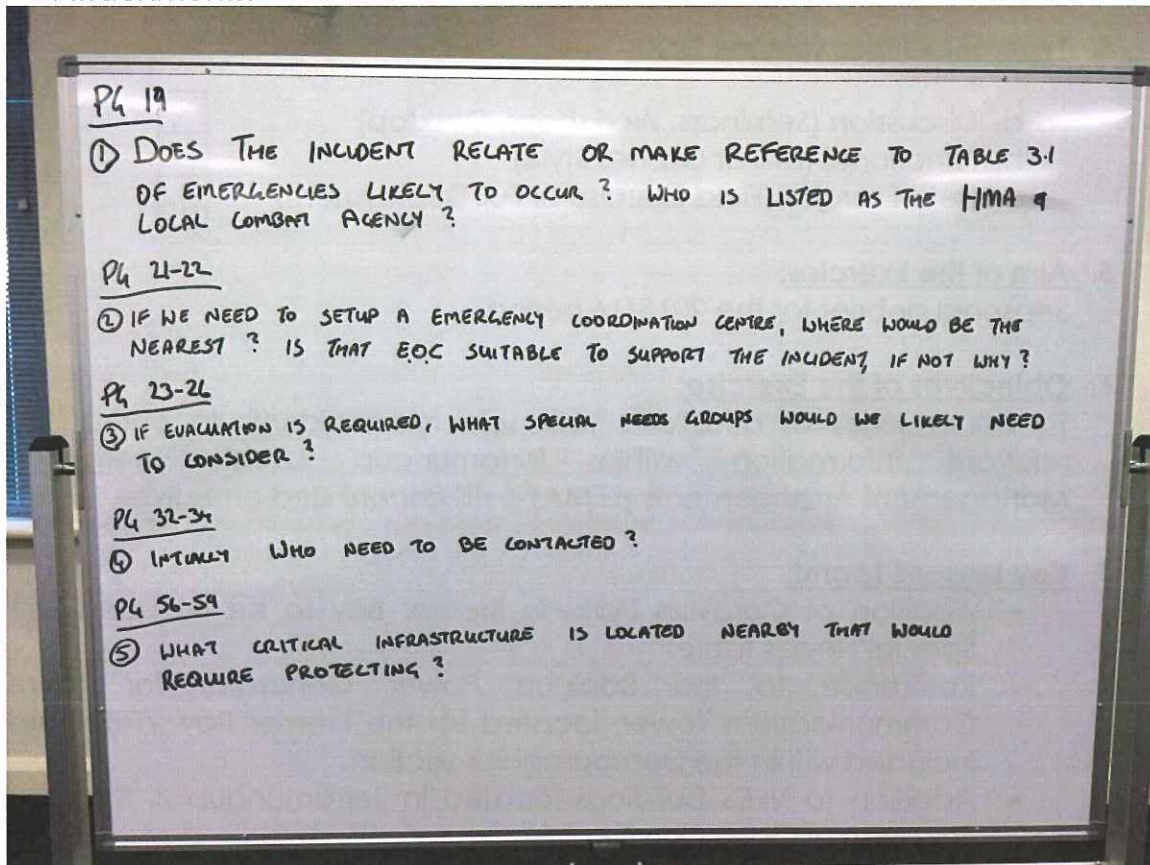 PG 19
① DOES THE INCIDENT RELATE OR MAKE REFERENCE TO TABLE 3.1
OF EMERGENCIES LIKELY TO OCCUR? WHO IS LISTED AS THE HMA &
LOCAL COMBAT AGENCY?
PG 21-22
② IF WE NEED TO SETUP A EMERGENCY COORDINATION CENTRE, WHERE WOULD BE THE
NEAREST? IS THAT EOC SUITABLE TO SUPPORT THE INCIDENT, IF NOT WHY?
PG 23-26
③ IF EVACUATION IS REQUIRED, WHAT SPECIAL NEEDS GROUPS WOULD WE LIKELY NEED
TO CONSIDER?
PG 32-34
④ INTIALLY WHO NEED TO BE CONTACTED?
PG 56-59
⑤ WHAT CRITICAL INFRASTRUCTURE IS LOCATED NEARBY THAT WOULD
REQUIRE PROTECTING?